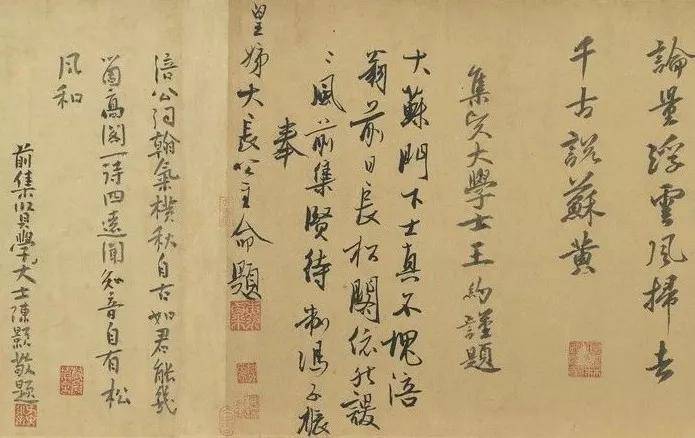 論量浮雲風掃去
千古說蘇黃
集賢大學士王約謹題
大蘇門下士真不愧涪
翁前日長松閣依然謖
〻風前集賢待制馮子振
奉
皇姊大長公主命題
涪公詞翰氣橫秋自古如君能幾
箇高閣一詩四遠聞知音自有松
風和
前集賢學大士陳顥敬題